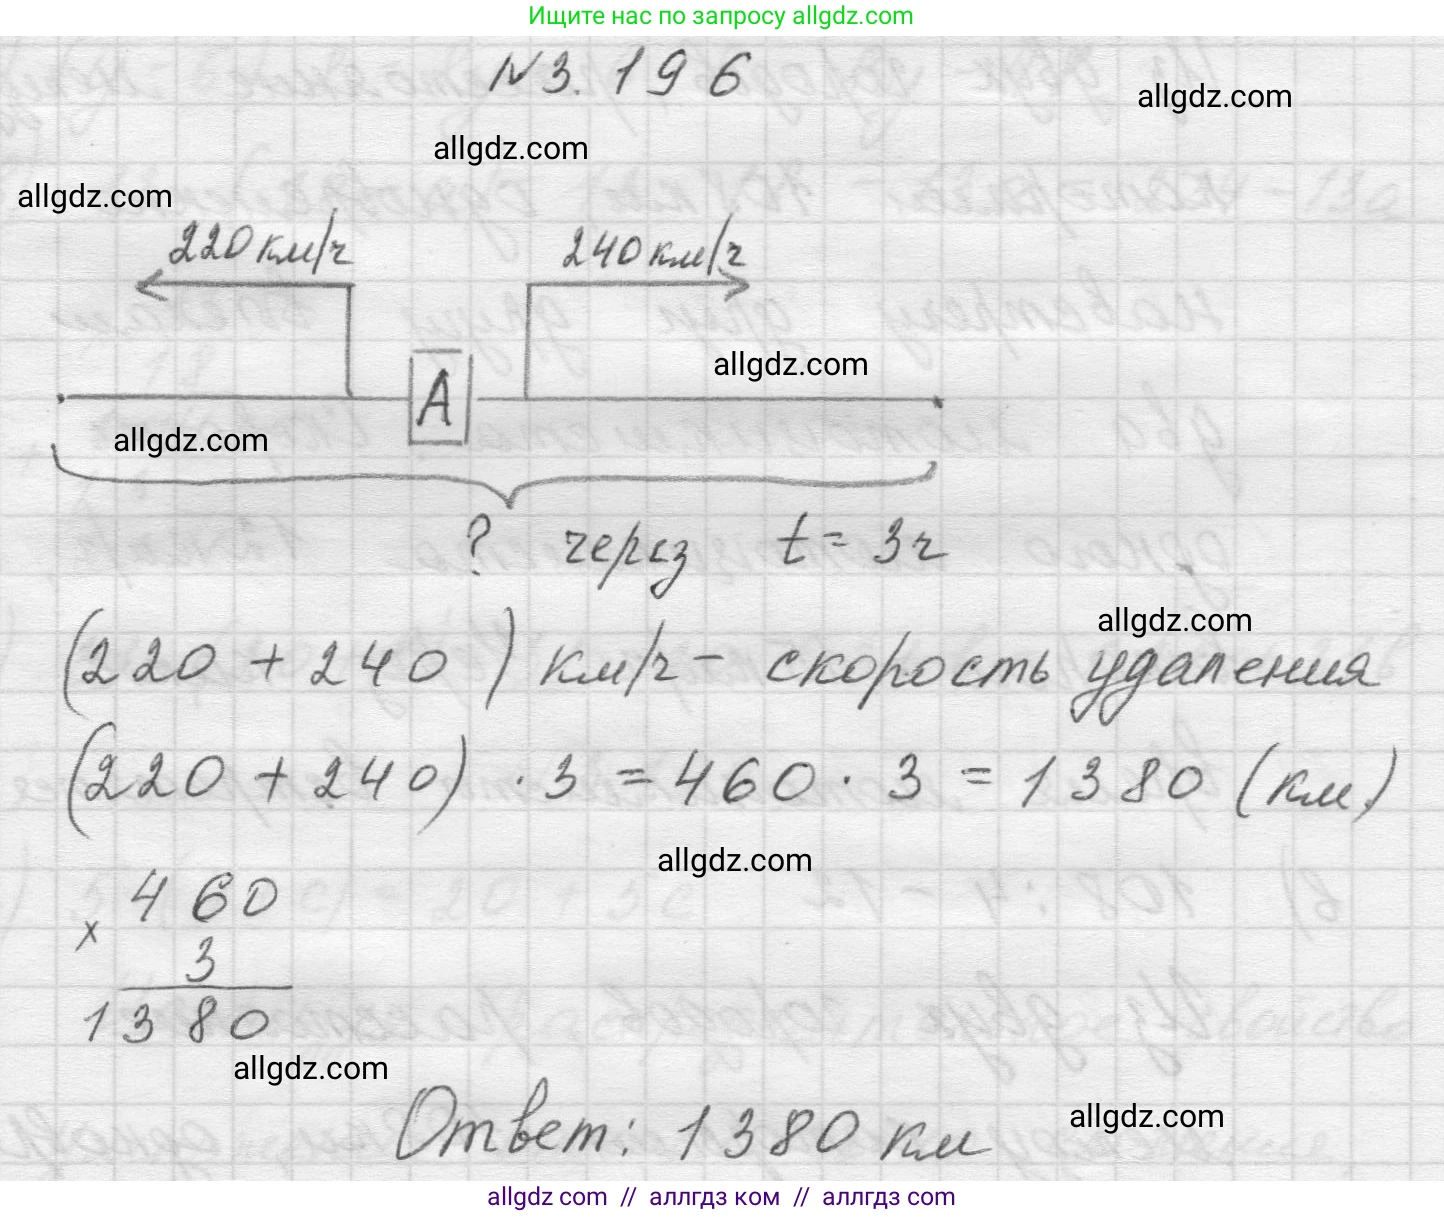 Ищите нас по запросу allgdz.com
№3.196
allgdz.com
allgdz.com
allgdz.com
220 км/ч 240 км/ч
allgdz.com
A
allgdz.com
? через t = 3ч
allgdz.com
(220 + 240) км/ч - скорость удаления
(220 + 240) · 3 = 460 · 3 = 1380 (км)
allgdz.com
460
×
3
1380
allgdz.com
allgdz.com
Ответ: 1380 км
allgdz com // аллгдз ком // аллгдз com